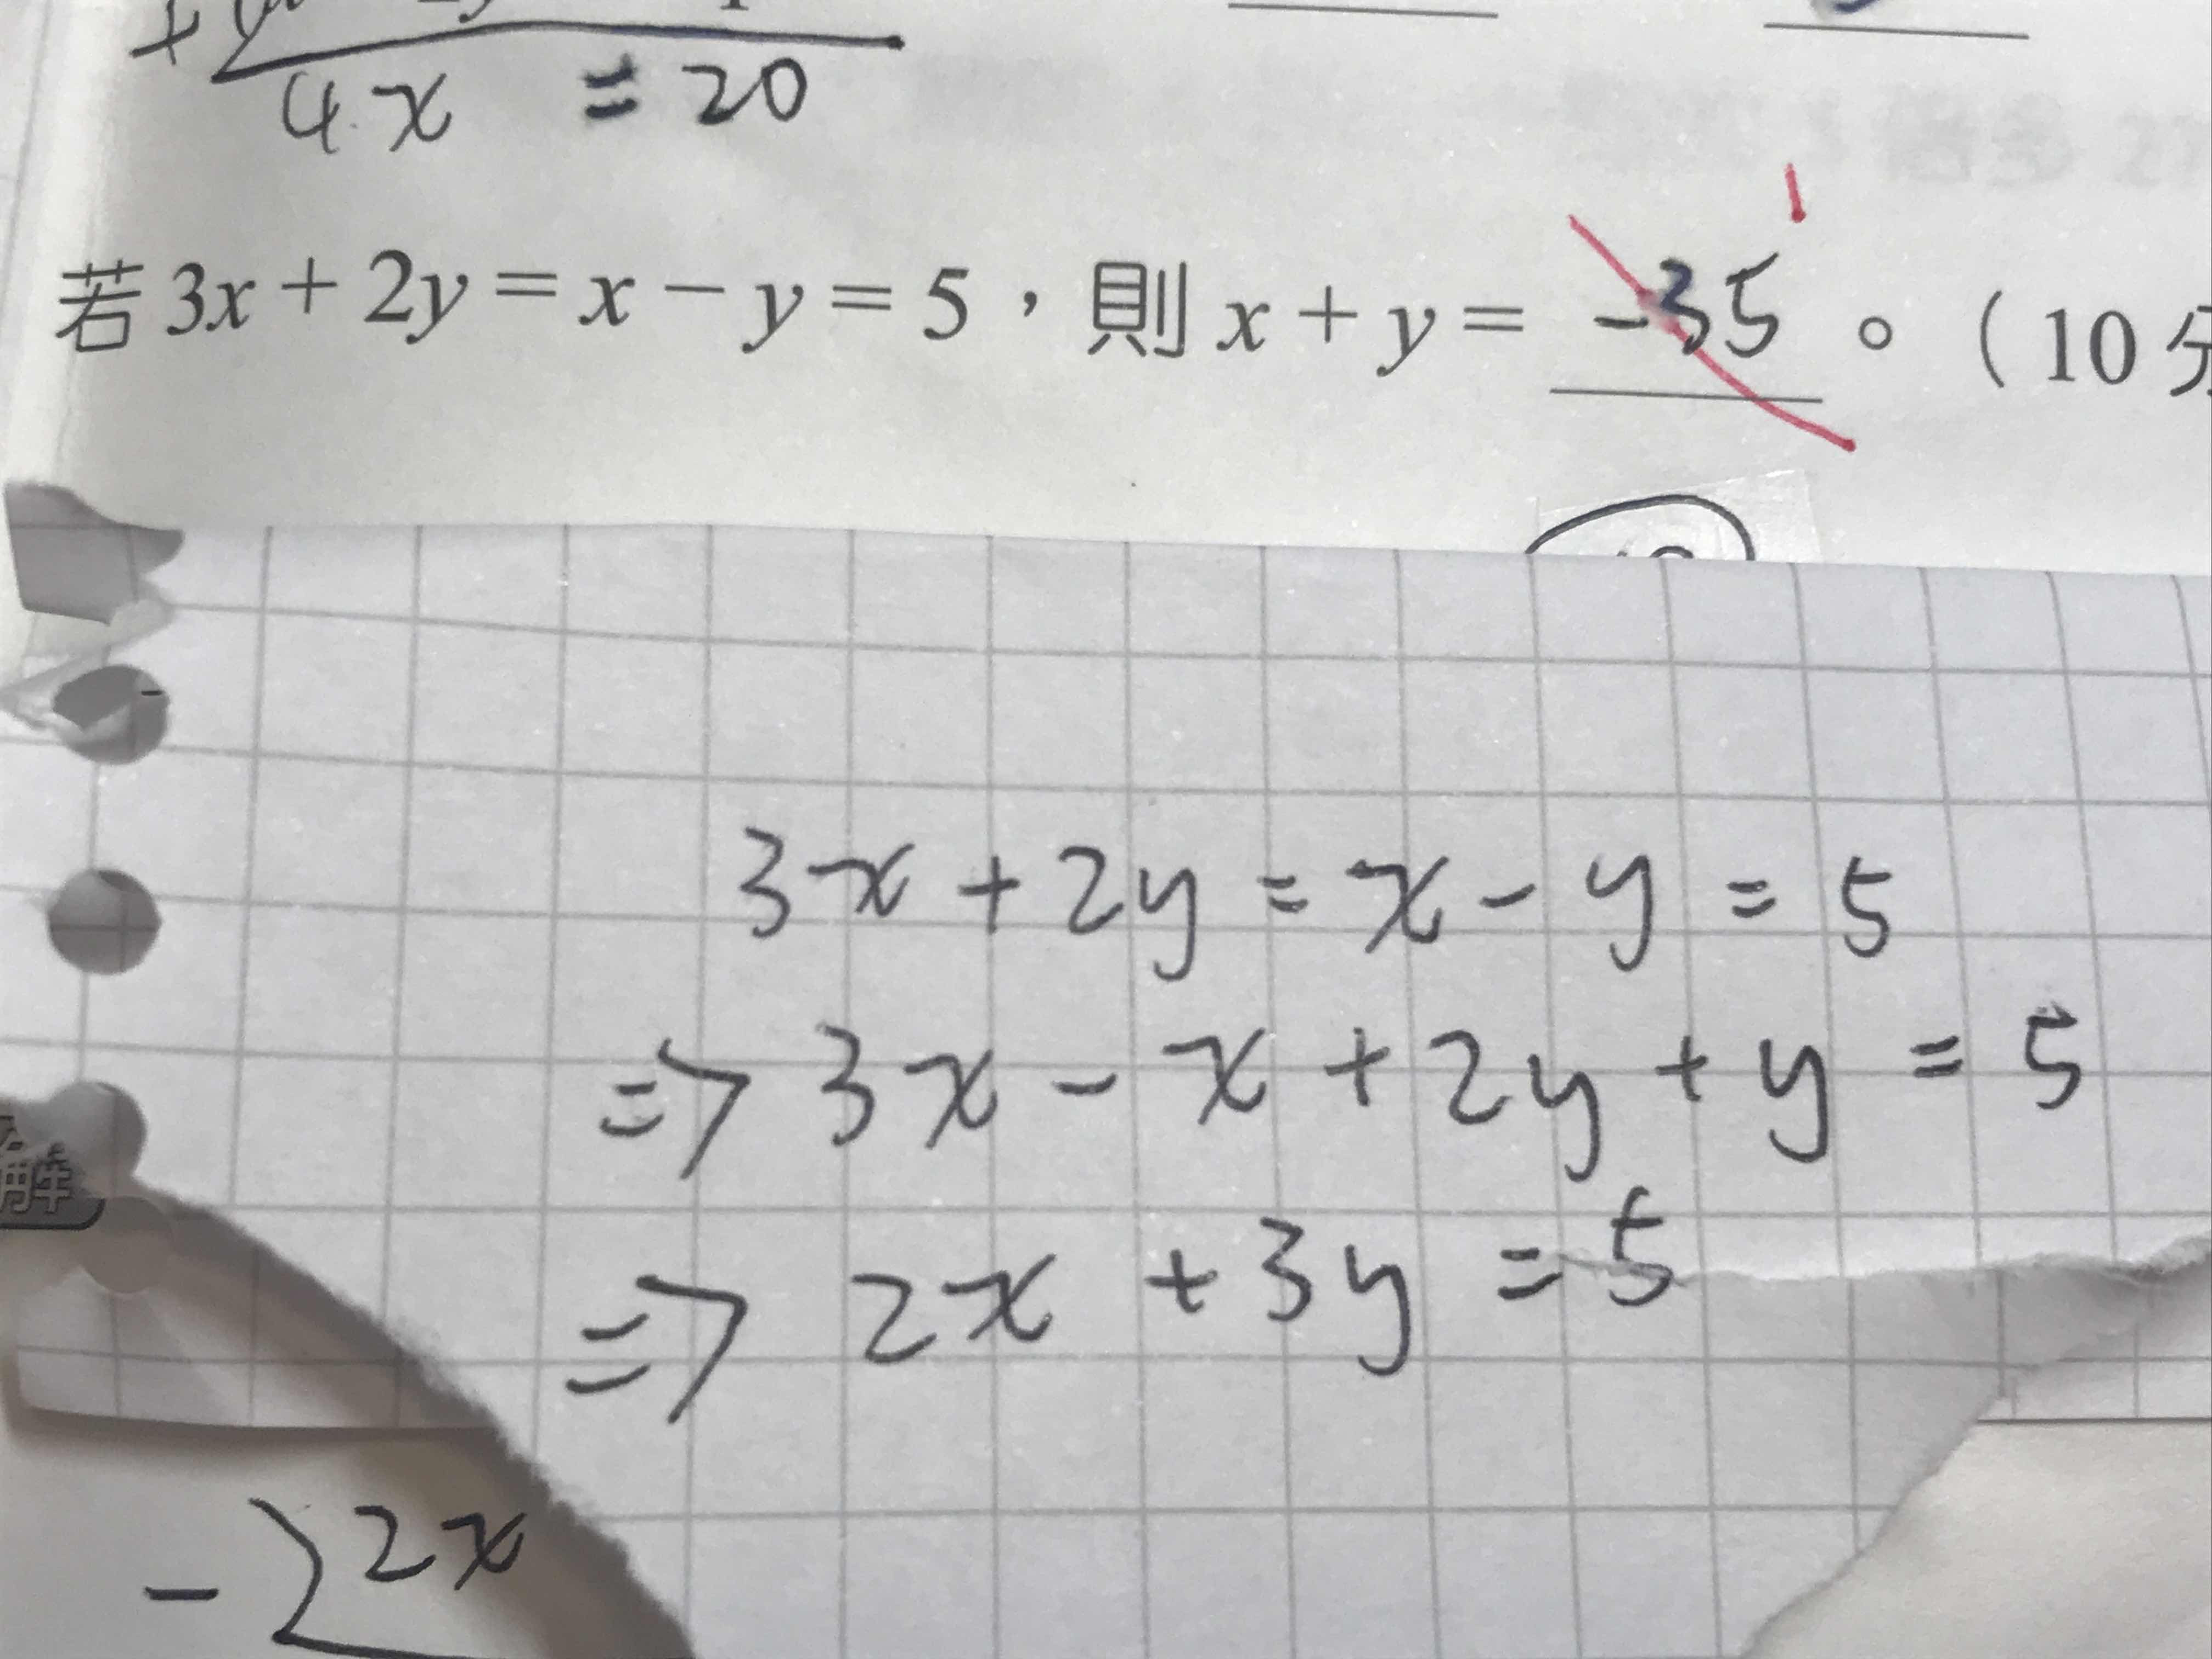 4x = 20
若 3x + 2y = x - y = 5，則 x + y = -35 。(10
1
3x + 2y = x - y = 5
=> 3x - x + 2y + y = 5
=> 2x + 3y = 5
解
- 2x